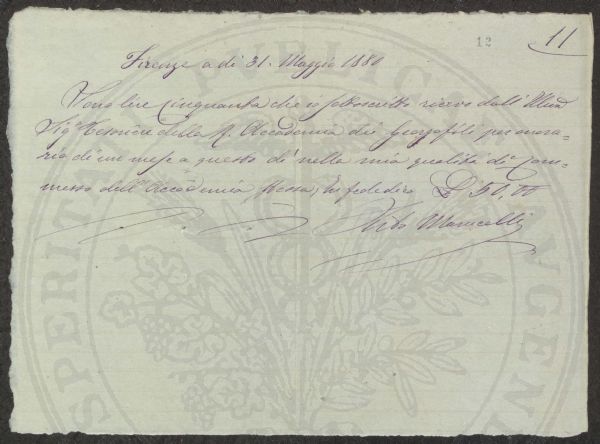 12
11
Firenze a di 31. Maggio 1880
Sono lire cinquanta che io sottoscritto ricevo dall' Illmo
Sigr Tesoriere della R. Accademia dei Georgofili per onora-
rio di un mese a questo dì nella mia qualità di Com-
messo dell' Accademia stessa, In fede dico £ 50,00
Vito
PUBLICAE
PROSPERITATI
AVGENDAE